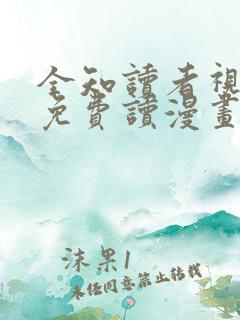 全知讀者視
免費讀漫畫
沫果1
未经同意禁止转载